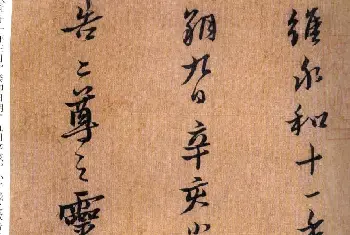 維永和十一年
朔九日辛亥小
告二尊之靈